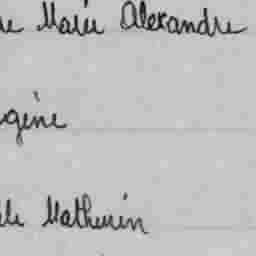 Marie Alexandre
gène
Mathurin